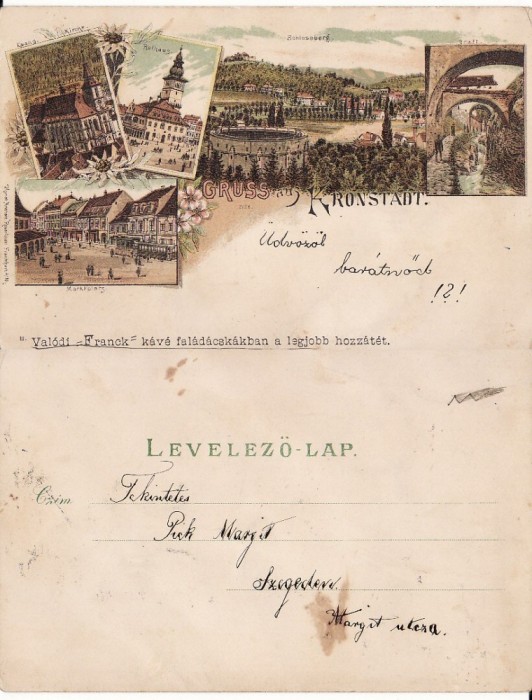 Rathhaus.
Schlossberg.
Graft.
GRUSS AUS KRONSTADT.
Marktplatz.
Üdvözöl
barátnőd
!?!
Valódi „Franck“ kávé faládácskákban a legjobb hozzátét.
LEVELEZŐ-LAP.
Czim
Tekintetes
Pick Margit
Szegeden.
Margit utcza.